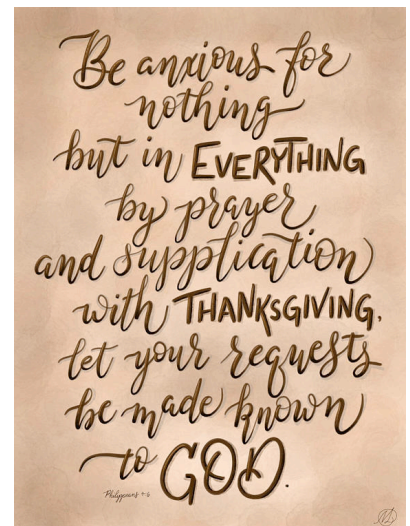 Be anxious for
nothing
but in EVERYTHING
by prayer
and supplication
with THANKSGIVING,
let your requests
be made known
to GOD.
Philippians 4:6